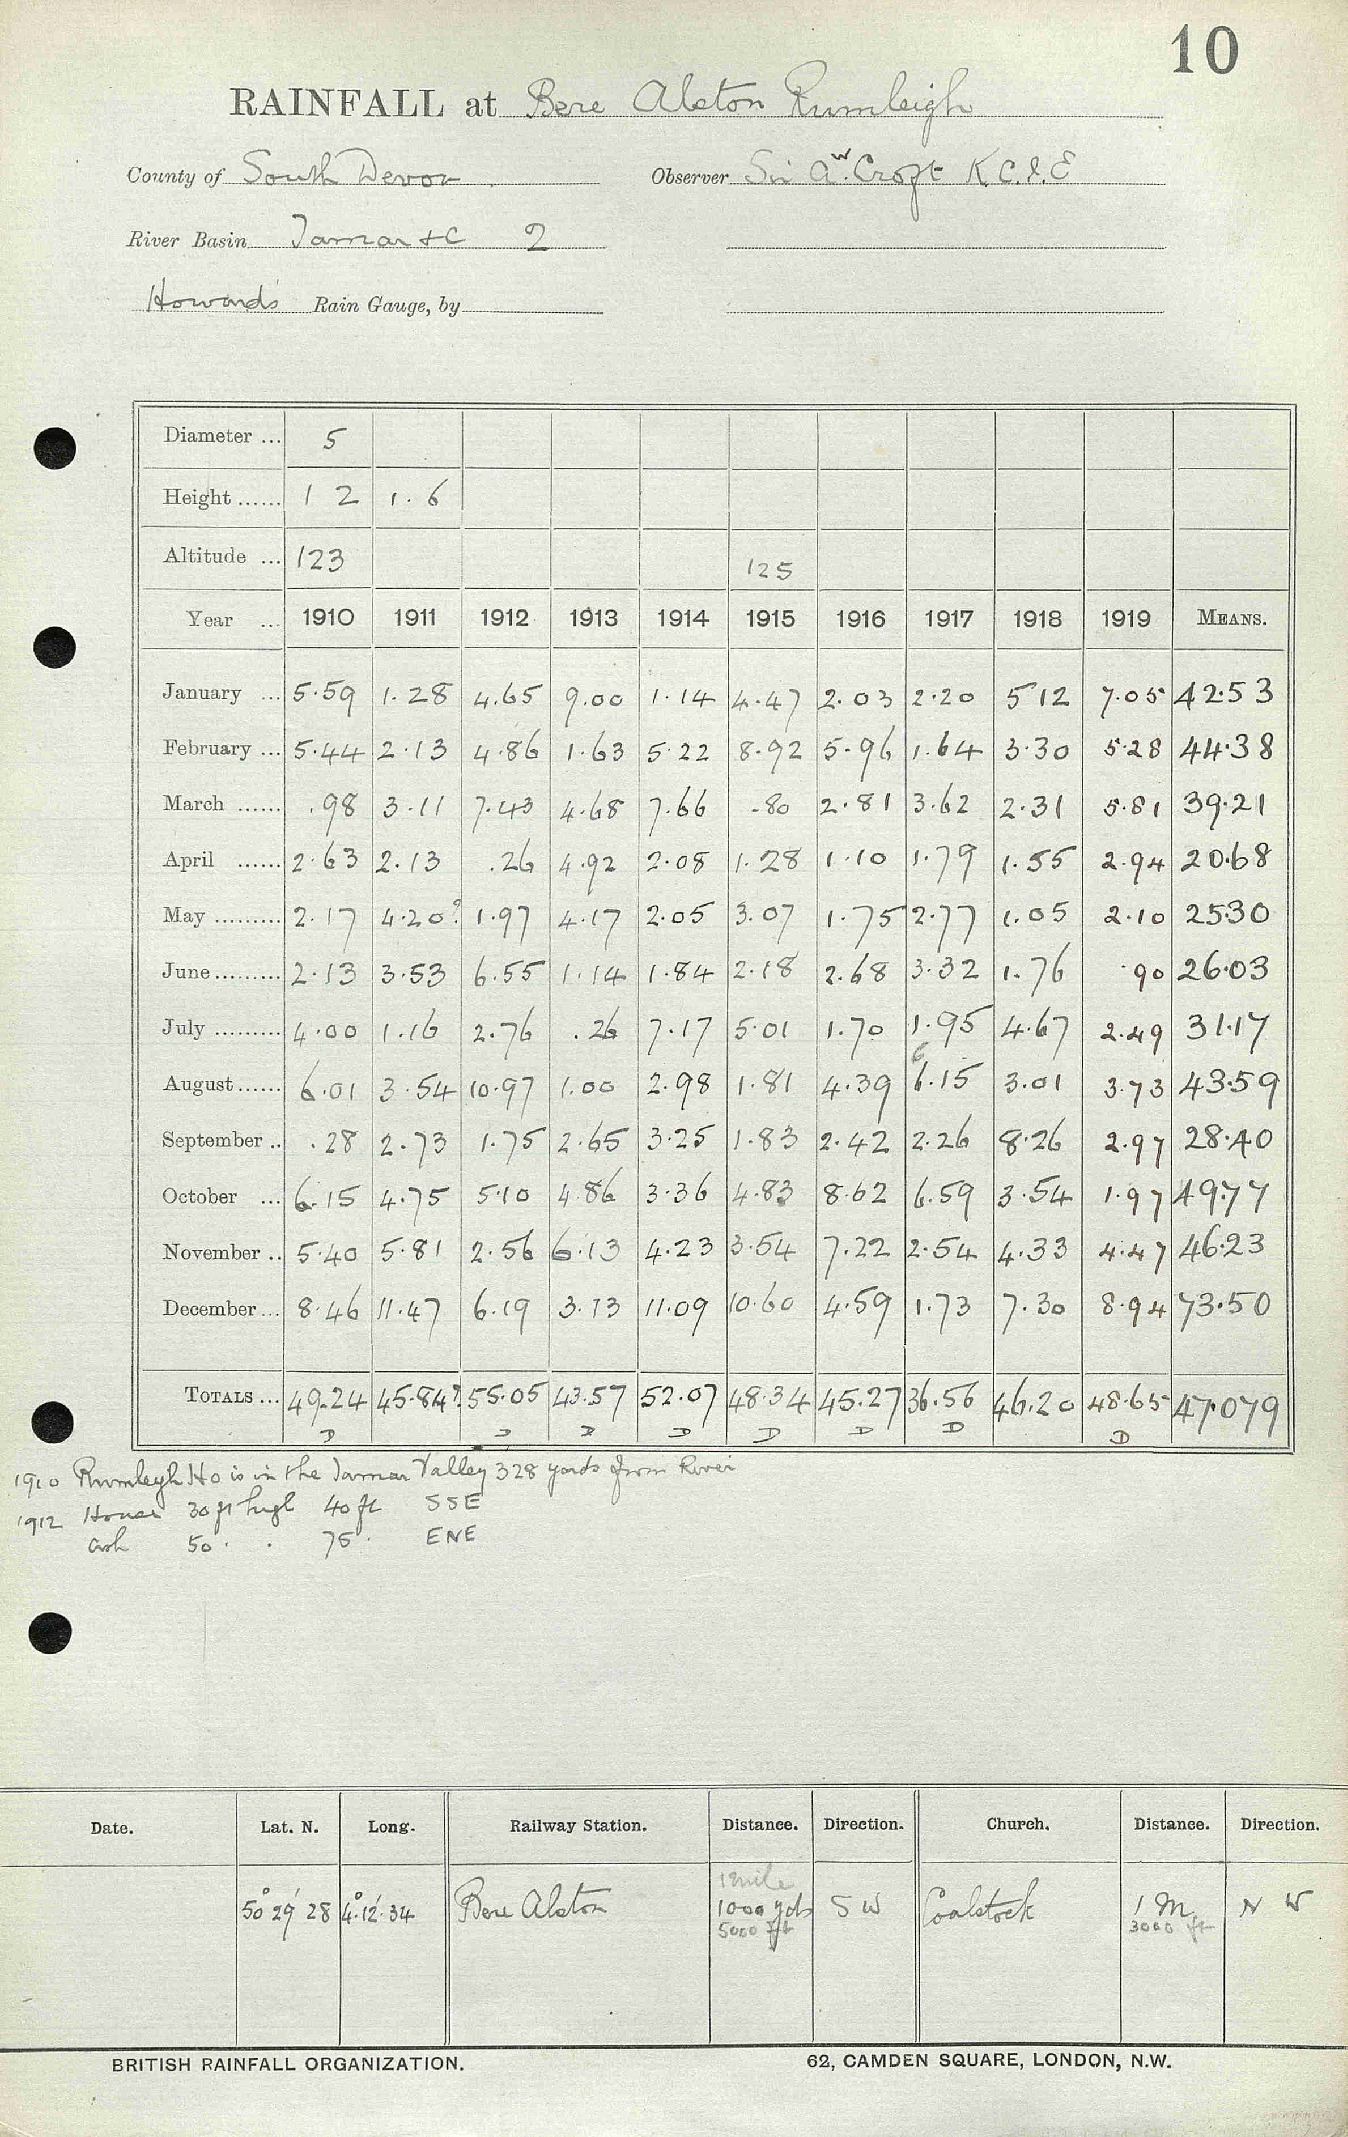 10
RAINFALL at Bere Alston Rumleigh
County of South Devon. Observer Sir A.W. Croft K.C.I.E
River Basin Tamar &c 2
Howard's Rain Gauge, by
Diameter ... 5
Height ...... 1 2 1.6
Altitude ... 123 125
Year ... 1910 1911 1912 1913 1914 1915 1916 1917 1918 1919 MEANS.
January ... 5.59 1.28 4.65 9.00 1.14 4.47 2.03 2.20 5 12 7.05 42.53
February ... 5.44 2.13 4.86 1.63 5 22 8.92 5.96 1.64 3.30 5.28 44.38
March ...... .98 3.11 7.43 4.68 7.66 .80 2.81 3.62 2.31 5.81 39.21
April ...... 2.63 2.13 .26 4.92 2.08 1.28 1.10 1.79 1.55 2.94 20.68
May ......... 2.17 4.20? 1.97 4.17 2.05 3.07 1.75 2.77 1.05 2.10 25.30
June ......... 2.13 3.53 6.55 1.14 1.84 2.18 2.68 3.32 1.76 .90 26.03
July ......... 4.00 1.16 2.76 .26 7.17 5.01 1.70 1.95 4.67 2.49 31.17
August ...... 6.01 3.54 10.97 1.00 2.98 1.81 4.39 6.15 3.01 3.73 43.59
September .. .28 2.73 1.75 2.65 3.25 1.83 2.42 2.26 8.26 2.97 28.40
October ... 6.15 4.75 5.10 4.86 3.36 4.83 8.62 6.59 3.54 1.97 49.77
November .. 5.40 5.81 2.56 6.13 4.23 3.54 7.22 2.54 4.33 4.47 46.23
December ... 8.46 11.47 6.19 3.13 11.09 10.60 4.59 1.73 7.30 8.94 73.50
TOTALS ... 49.24 45.84? 55.05 43.57 52.07 48.34 45.27 36.56 46.20 48.65 470.79
D D D D D D D D
1910 Rumleigh Ho is in the Tamar Valley 328 yards from River
1912 House 30 ft high 40 ft SSE
Ash 50 . . 75 . ENE
Date. Lat. N. Long. Railway Station. Distance. Direction. Church. Distance. Direction.
1 mile
50° 29' 28 4° 12' 34 Bere Alston 1000 yds S W Coalstock 1 m N W
5000 ft 3000 ft
BRITISH RAINFALL ORGANIZATION. 62, CAMDEN SQUARE, LONDON, N.W.